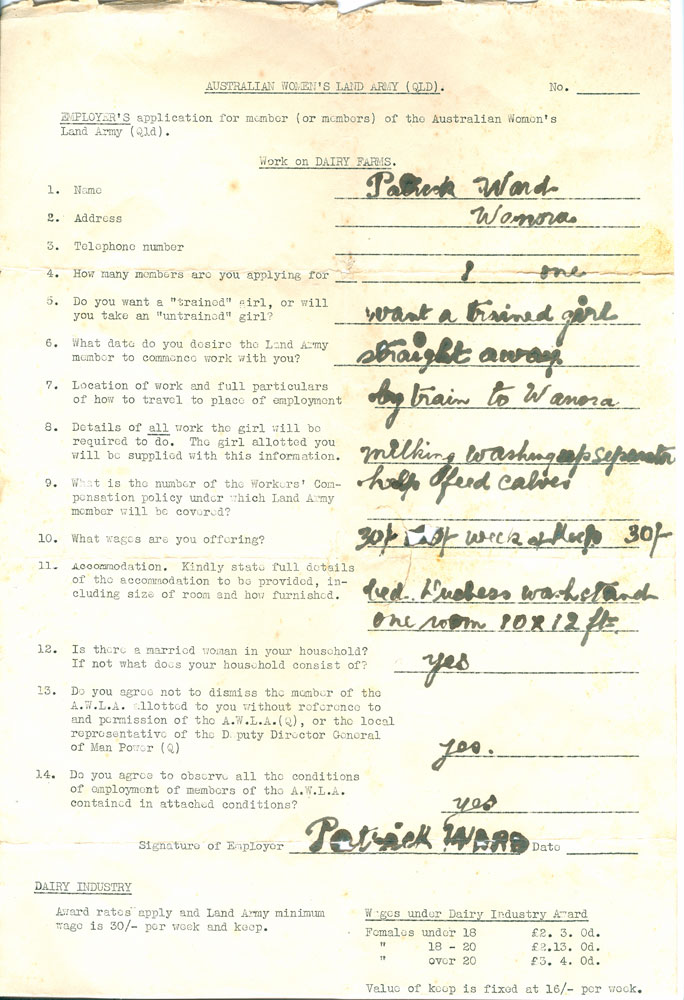 AUSTRALIAN WOMEN'S LAND ARMY (QLD).    No. ________
EMPLOYER'S application for member (or members) of the Australian Women's
Land Army (Qld).
Work on DAIRY FARMS.
1. Name    Patrick Ward
2. Address    Wanora
3. Telephone number
4. How many members are you applying for    1 one
5. Do you want a "trained" girl, or will
you take an "untrained" girl?    want a trained girl
6. What date do you desire the Land Army
member to commence work with you?    straight away
7. Location of work and full particulars
of how to travel to place of employment    by train to Wanora
8. Details of all work the girl will be
required to do. The girl allotted you
will be supplied with this information.    milking washing up separator
help feed calves
9. What is the number of the Workers' Com-
pensation policy under which Land Army
member will be covered?
10. What wages are you offering?    30/- week & keep 30/-
11. Accommodation. Kindly state full details
of the accommodation to be provided, in-
cluding size of room and how furnished.    bed. Duchess washstand
one room 10 x 12 ft.
12. Is there a married woman in your household?
If not what does your household consist of?    yes
13. Do you agree not to dismiss the member of the
A.W.L.A. allotted to you without reference to
and permission of the A.W.L.A.(Q), or the local
representative of the Deputy Director General
of Man Power (Q)    yes.
14. Do you agree to observe all the conditions
of employment of members of the A.W.L.A.
contained in attached conditions?    yes
Signature of Employer Patrick Ward Date ________
DAIRY INDUSTRY
Award rates apply and Land Army minimum
wage is 30/- per week and keep.
Wages under Dairy Industry Award
Females under 18    £2. 3. 0d.
"    18 - 20    £2.13. 0d.
"    over 20    £3. 4. 0d.
Value of keep is fixed at 16/- per week.